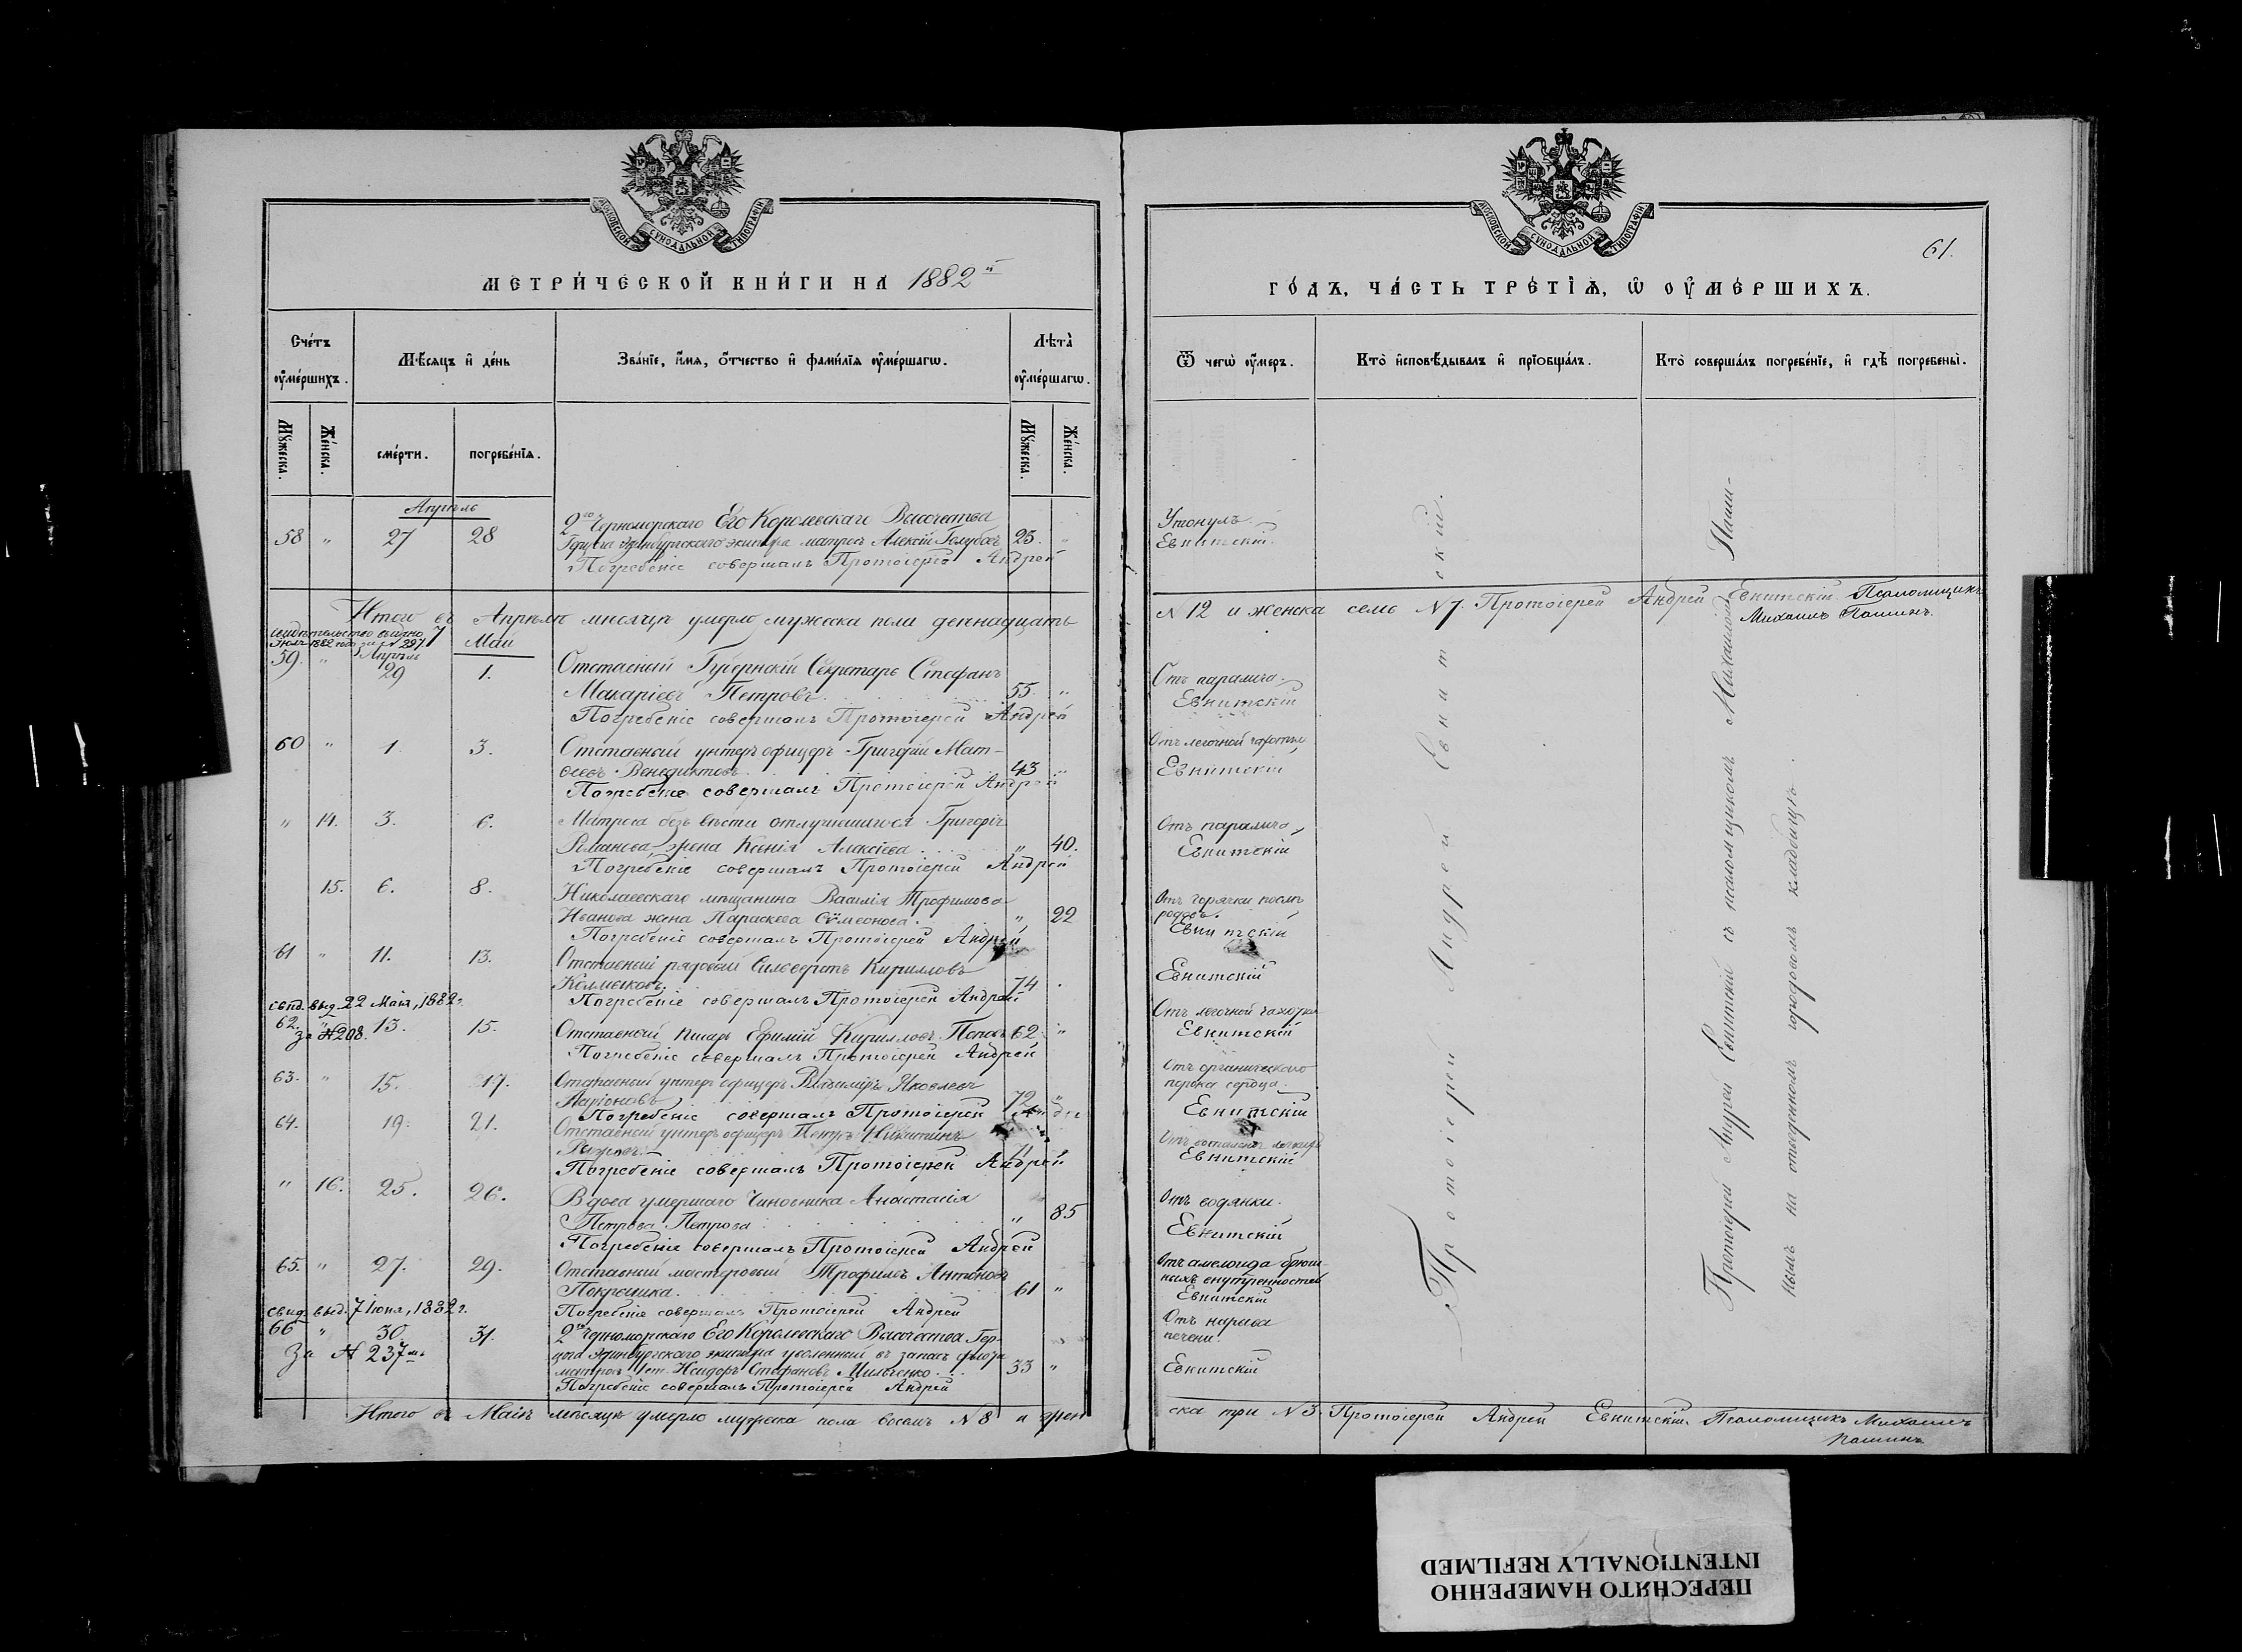 МОСКОВСКОЙ СѴНОДАЛЬНОЙ ТИПОГРАФІИ
МЕТРИ́ЧЕСКОЙ КНИ́ГИ НА 1882й
Сче́тъ ᲂу҆ме́ршихъ.
Мѣ́сяцъ и҆ де́нь
Зва́нїе, и҆́мя, ѻ҆́тчество и҆ фами́лїя ᲂу҆ме́ршагѡ.
Лѣ́та ᲂу҆ме́ршагѡ.
Мꙋ́жеска.
Же́нска.
сме́рти.
погребе́нїѧ.
Мꙋ́жеска.
Же́нска.
Апрѣль
58 " 27 28 2го Черноморскаго Его Королевскаго Высочества
Герцога Эдинбургскаго экипажа матросъ Алексій Голубовъ 25. "
Погребеніе совершалъ Протоіерей Андрей
Итого въ Апрѣлѣ мѣсяцѣ умерло мужеска пола двѣнадцать
свидѣтельство выдано 7
1882 года за № 297.
Май
59. " Апрѣль 29 1. Отставный Губернскій Секретарь Стефанъ
Макаріевъ Петровъ. 55. "
Погребеніе совершалъ Протоіерей Андрей
60 " 1 3. Отставный унтеръ офицеръ Григорій Мат-
ѳеевъ Венедиктовъ. 43 "
Погребеніе совершалъ Протоіерей Андрей
" 14. 3. 6. Матроса безъ вѣсти отлучившагося Григорія
Романова жена Ксенія Алексіева " 40.
Погребеніе совершалъ Протоіерей Андрей
15. 6. 8. Николаевскаго мѣщанина Василія Трофимова
Иванова жена Параскева Сѵмеонова. " 22
Погребеніе совершалъ Протоіерей Андрей
61 " 11. 13. Отставный рядовый Сильвестръ Кирилловъ
74
Погребеніе совершалъ Протоіерей Андрей
свид. выд. 22 Мая, 1882 г.
62. " 13. 15. Отставный писарь Ефимій Кирилловъ Поповъ 62. "
за № 208.
Погребеніе совершалъ Протоіерей Андрей
63. " 15. 17. Отставный унтеръ офицеръ Владиміръ Яковлевъ
Ларіоновъ 72
Погребеніе совершалъ Протоіерей
64. 19. 21. Отставный унтеръ офицеръ Петръ Никитинъ
71
Погребеніе совершалъ Протоіерей Андрей
" 16. 25. 26. Вдова умершаго Чиновника Анастасія
Петрова Петрова " 85
Погребеніе совершалъ Протоіерей Андрей
65. " 27. 29. Отставный мастеровый Трофимъ Антоновъ
61 "
Погребеніе совершалъ Протоіерей Андрей
свид. выд. 7 Іюня, 1882 г.
66 " 30. 31. 2го Черноморскаго Его Королевскаго Высочества Гер-
за № 237мъ
цога Эдинбургскаго экипажа уволенный въ запасъ флота
матросъ 1 ст. Исидоръ Стефановъ Мильченко 33 "
Погребеніе совершалъ Протоіерей Андрей
Итого въ Маѣ мѣсяцѣ умерло мужеска пола восемь № 8 и жен
МОСКОВСКОЙ СѴНОДАЛЬНОЙ ТИПОГРАФІИ
61.
ГО́ДЪ, ЧА́СТЬ ТРЕ́ТІѦ, Ѡ ОУ҆МЕ́РШИХЪ.
Ѿ чегѡ̀ ᲂу҆́меръ.
Кто̀ и҆сповѣ́дывалъ и҆ прїобща́лъ.
Кто̀ соверша́лъ погребе́нїе, и҆ гдѣ̀ погребены̀.
Утонулъ.
Евнитскій.
№ 12 и женска семь № 7. Протоіерей Андрей Евнитскій. Псаломщикъ
Михаилъ Пашинъ.
Отъ паралича.
Евнитскій
Отъ легочной чахотки
Евнитскій
Отъ паралича
Евнитскій
Отъ горячки послѣ
родовъ.
Евнитскій
Евнитскій
Отъ легочной чахотки
Евнитскій
Отъ органическаго
порока сердца.
Евнитскій
Отъ воспаленія легкихъ
Евнитскій
Отъ водянки.
Евнитскій
Отъ амелоида брюш-
ныхъ внутренностей
Евнитскій
Отъ нарыва
печени.
Евнитскій
Протоіерей Андрей Евнитскій.
Протоіерей Андрей Евнитскій съ псаломщикомъ Михаиломъ Паши-
нымъ на отведенномъ городомъ кладбищѣ.
ска три № 3. Протоіерей Андрей Евнитскій. Псаломщикъ Михаилъ
Пашинъ
ПЕРЕСНЯТО НАМЕРЕННО
INTENTIONALLY REFILMED